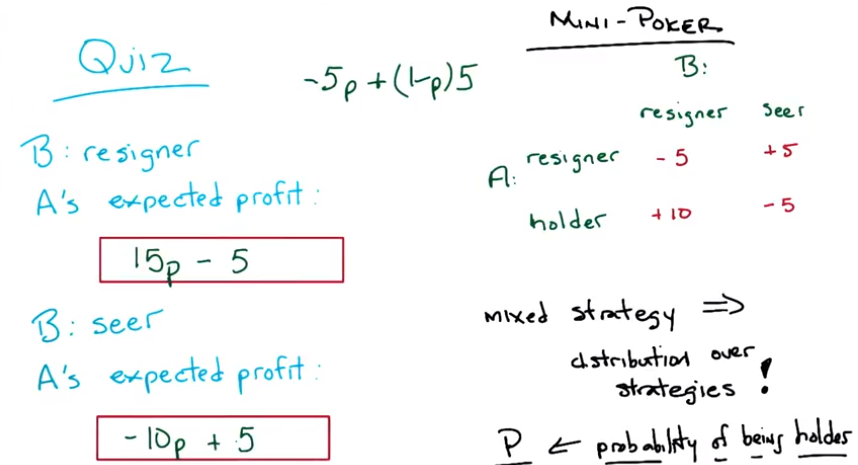 Quiz
-5p + (1-p)5
B: resigner
A's expected profit:
15p - 5
B: seer
A's expected profit:
-10p + 5
MINI-POKER
B:
resigner seer
A: resigner -5 +5
holder +10 -5
mixed strategy ⇒
distribution over
strategies!
P ← probability of being holder